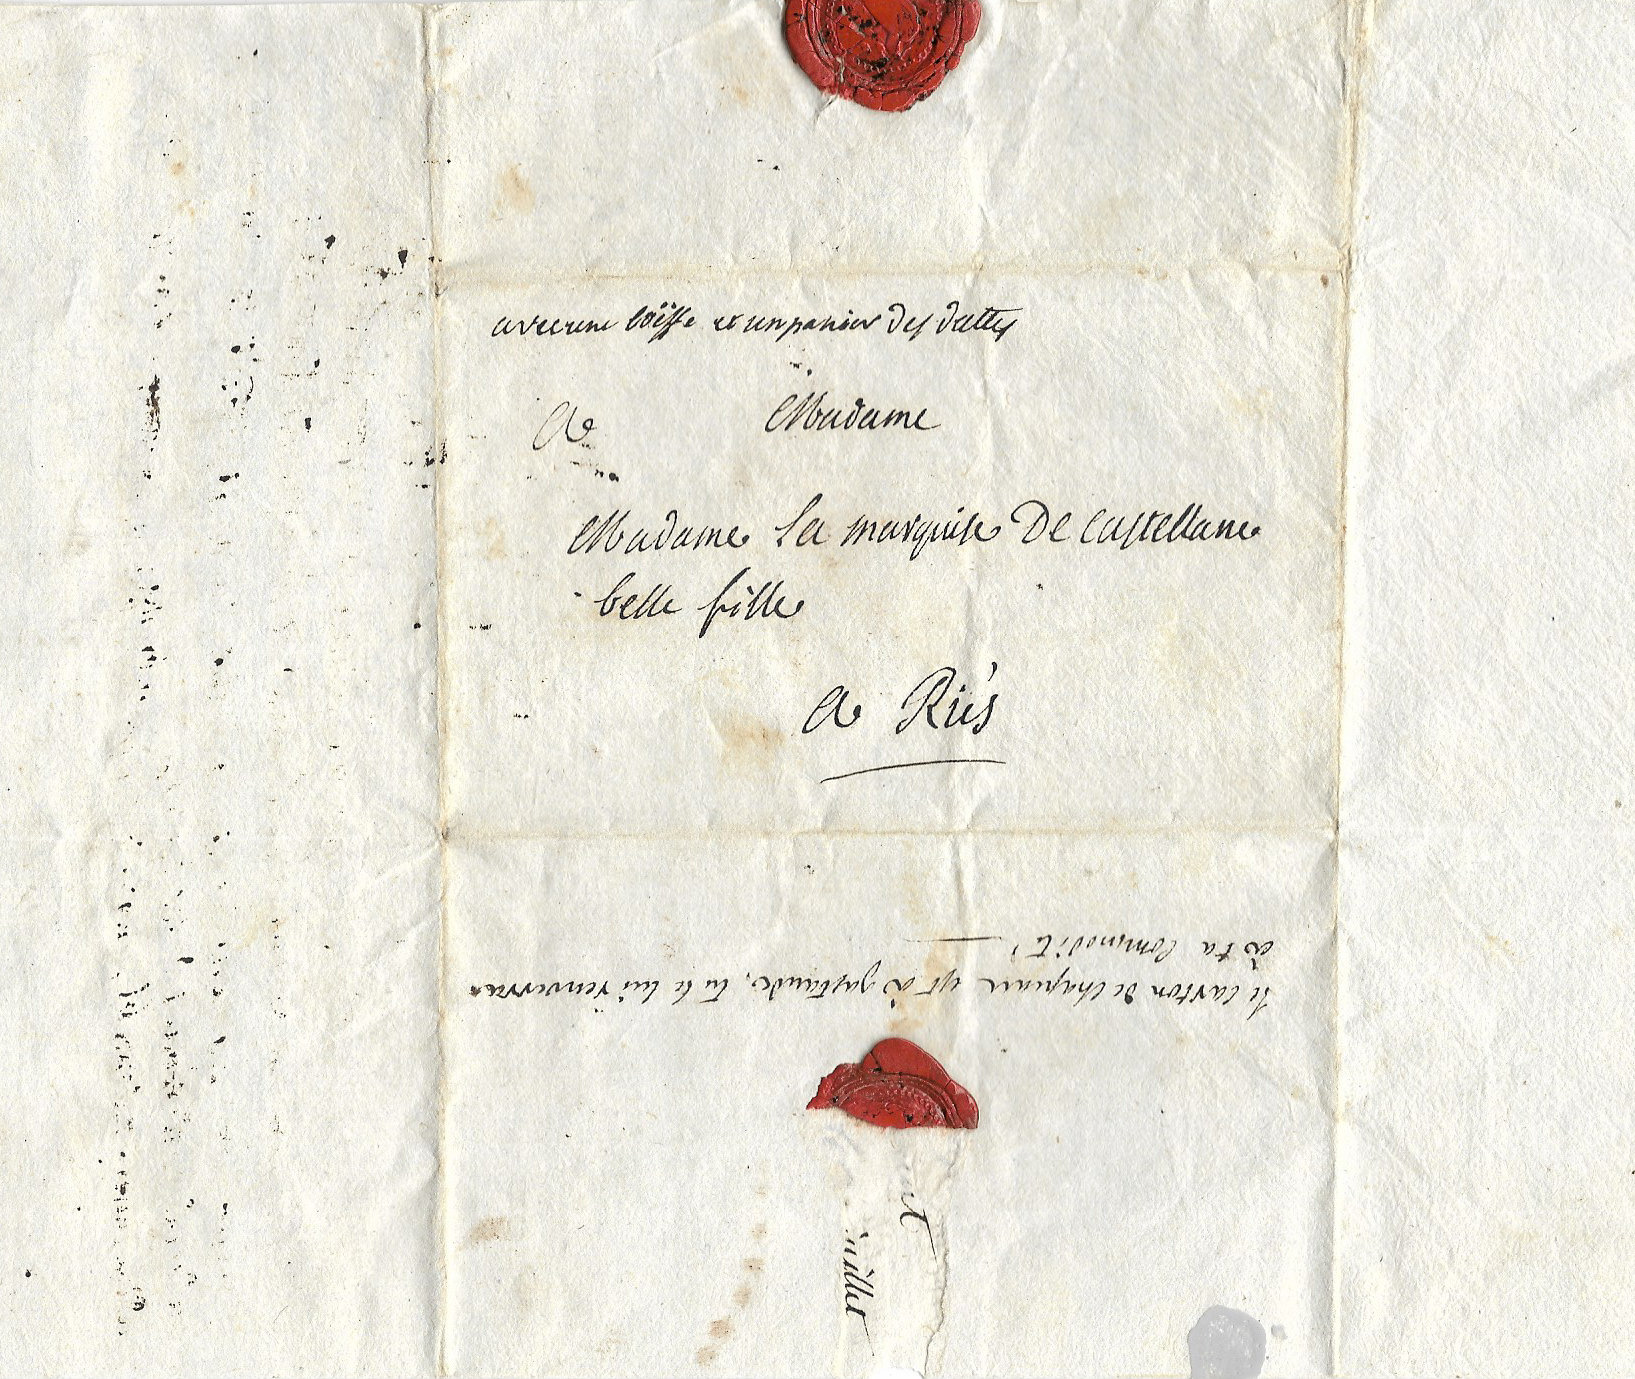 avec une boîsse et un panier des dattes
A Madame
Madame La marquise De Castellane
belle fille
A Riés
le carton de chapeau est à gastaude, tu le lui renverras
à ta Commodité
juillet